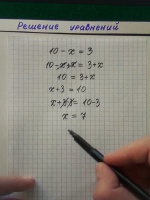 Решение уравнений
10 - x = 3
10 - x + x = 3 + x
10 = 3 + x
x + 3 = 10
x = 10 - 3
x = 7